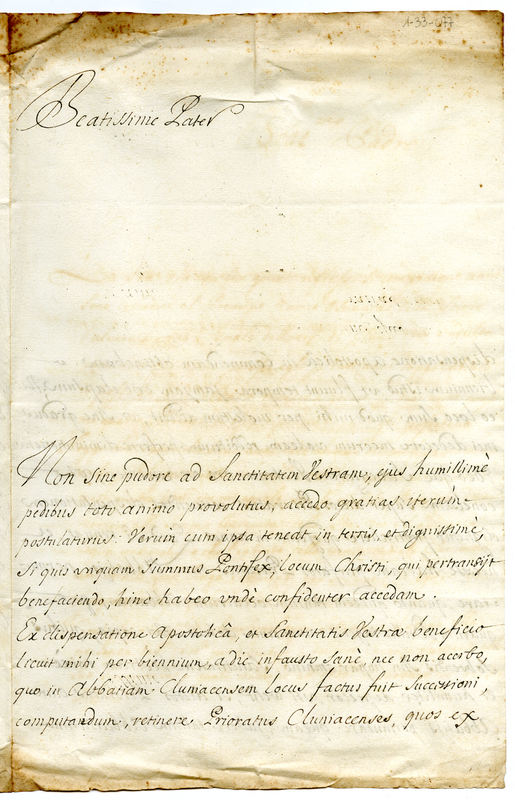 1-33-077
Beatissime Pater
Non sine pudore ad Sanctitatem Vestram, ejus humillimè
pedibus toto animo provolutus; accedo gratias iterùm
postulaturus. Verùm cum ipsa teneat in terris, et dignissime,
Si quis unquam Summus Pontifex, locum Christi, qui pertransijt
benefaciendo, hinc habeo undè confidenter accedam.
Ex dispensatione Apostolicâ, et Sanctitatis Vestræ beneficio
licuit mihi per biennium, a die infausto sanè, nec non acerbo,
quo in Abbatiam Cluniacensem locus factus fuit Successioni,
computandum, retinere Prioratus Cluniacenses, quos ex